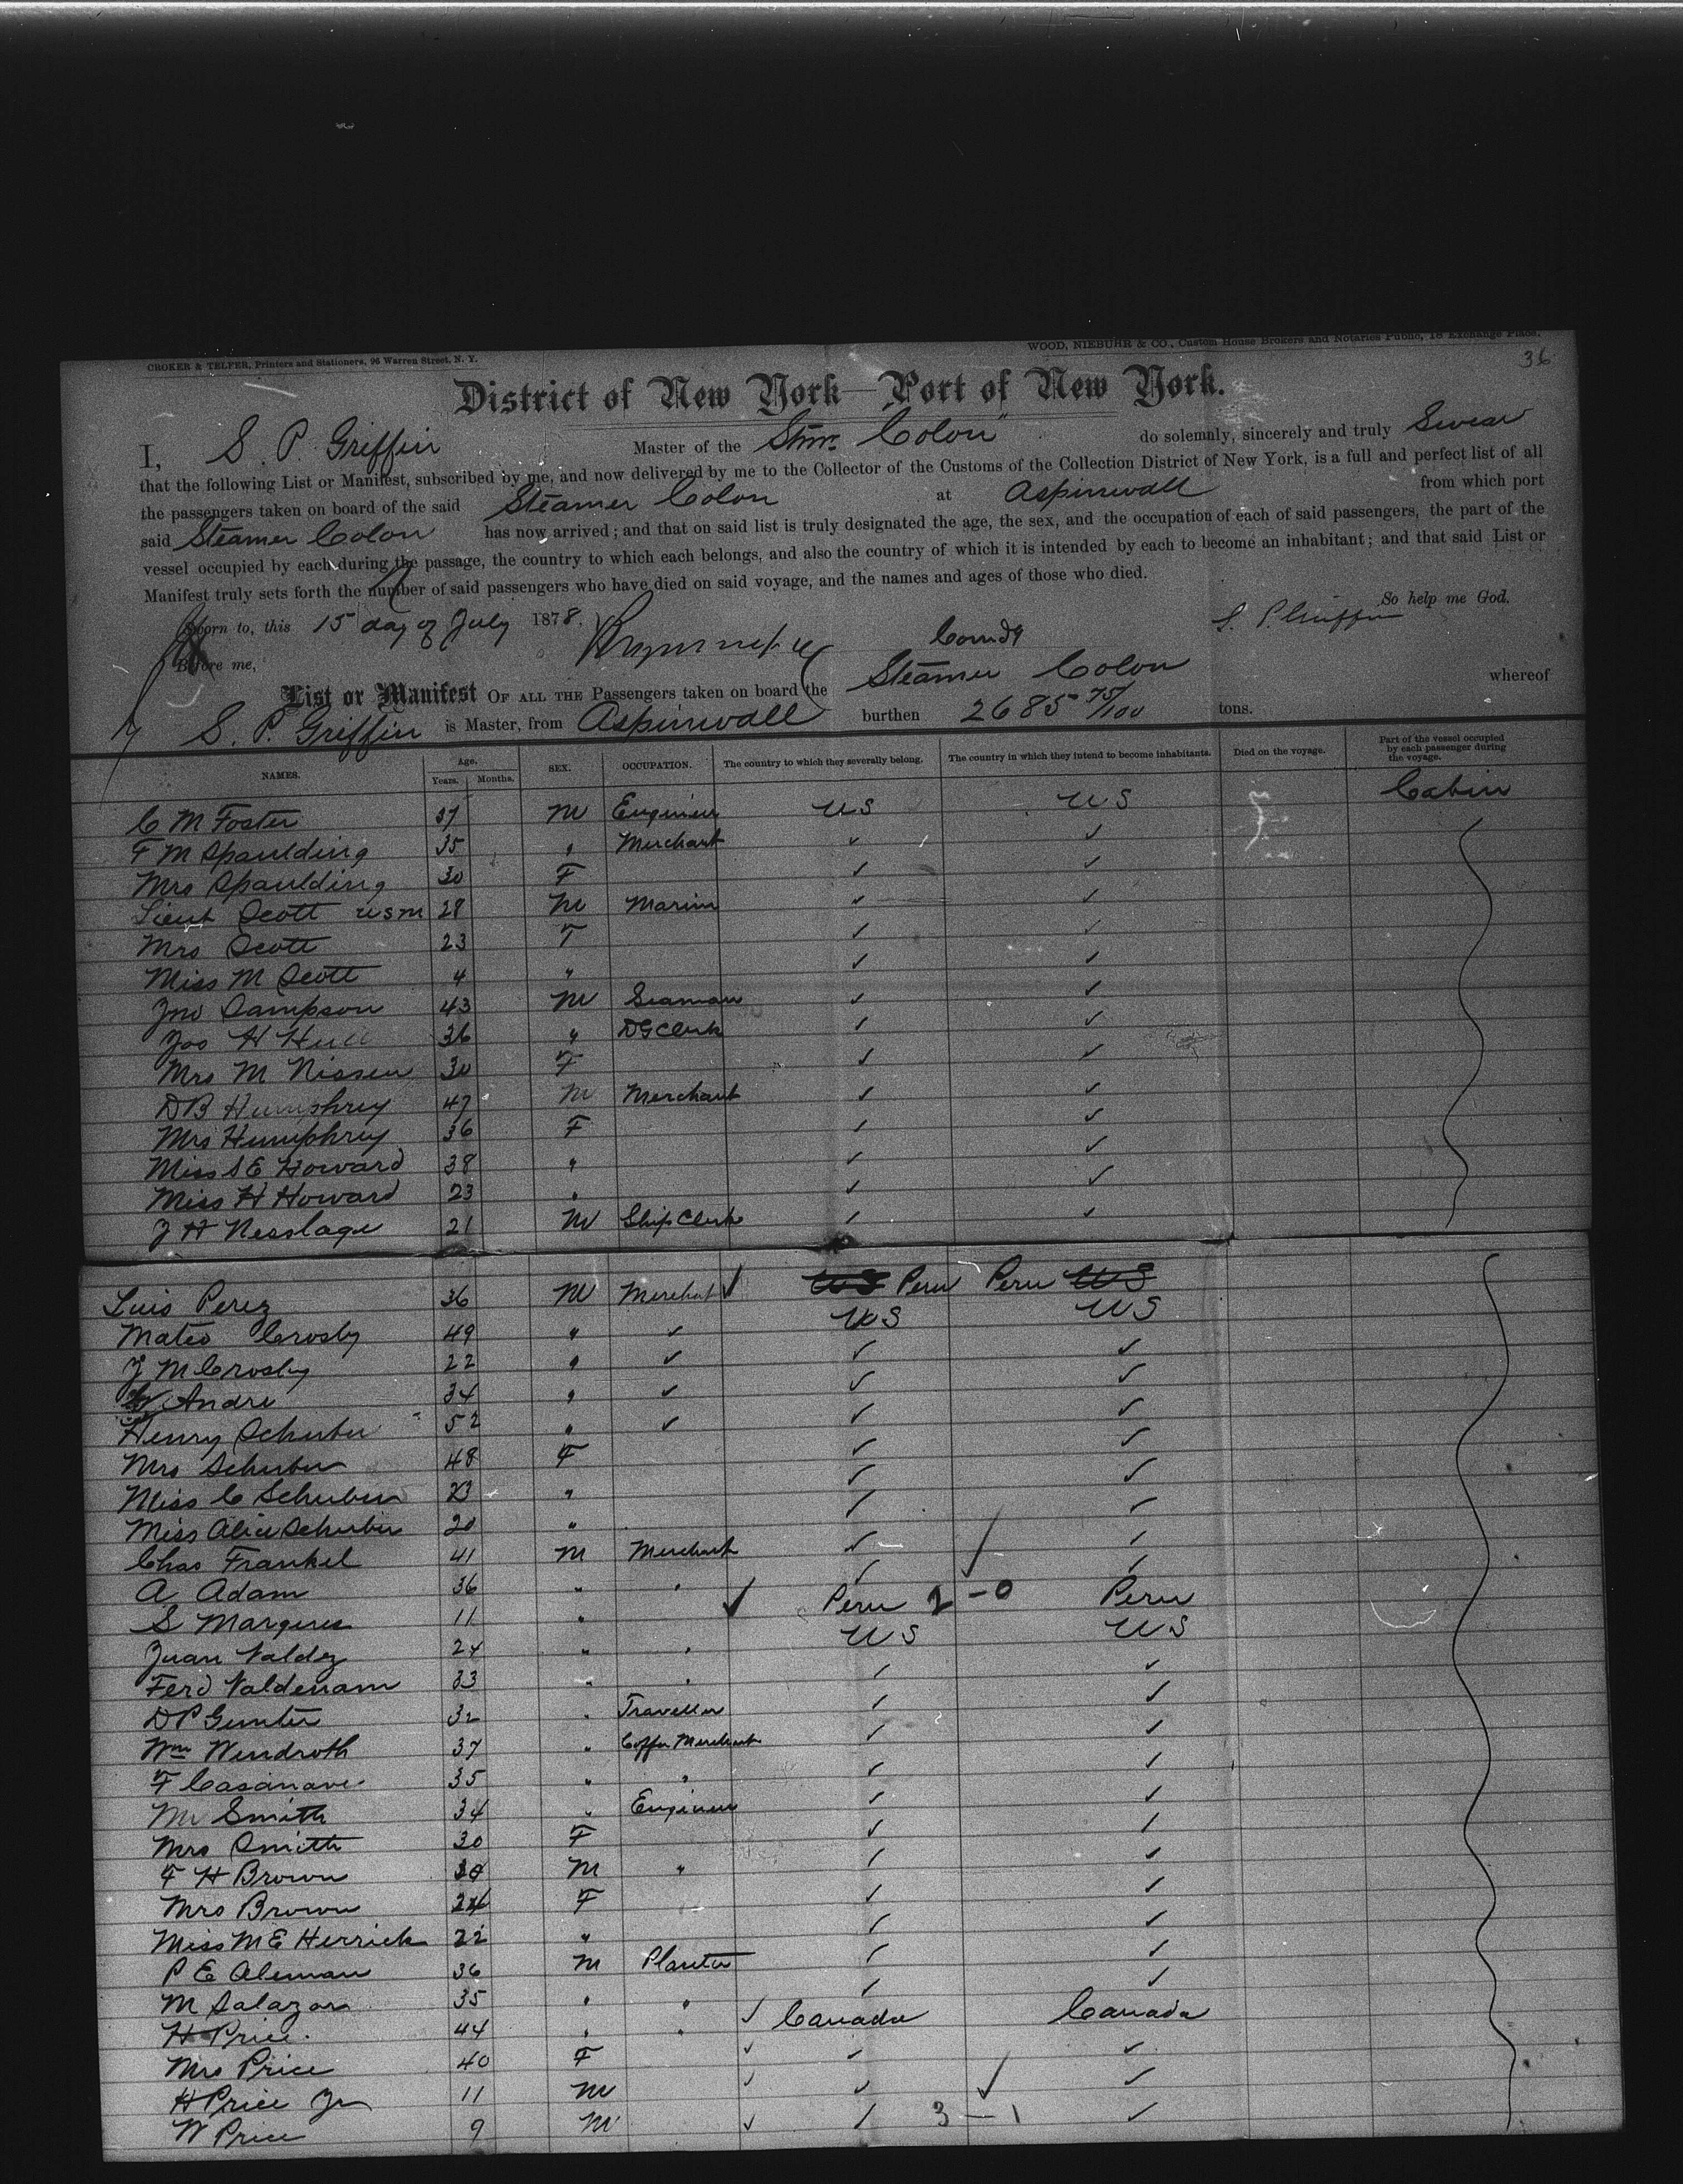 CROKER & TELFER, Printers and Stationers, 96 Warren Street, N. Y.
WOOD, NIEBUHR & CO., Custom House Brokers and Notaries Public, 18 Exchange Place.
36
District of New York—Port of New York.
I, S. P. Griffin Master of the Stmr. "Colon" do solemnly, sincerely and truly Swear
that the following List or Manifest, subscribed by me, and now delivered by me to the Collector of the Customs of the Collection District of New York, is a full and perfect list of all
the passengers taken on board of the said Steamer Colon at Aspinwall from which port
said Steamer Colon has now arrived; and that on said list is truly designated the age, the sex, and the occupation of each of said passengers, the part of the
vessel occupied by each during the passage, the country to which each belongs, and also the country of which it is intended by each to become an inhabitant; and that said List or
Manifest truly sets forth the number of said passengers who have died on said voyage, and the names and ages of those who died.
So help me God.
Sworn to, this 15 day of July 1878. S. P. Griffin
Before me, Comdg
List or Manifest OF ALL THE Passengers taken on board the Steamer Colon whereof
S. P. Griffin is Master, from Aspinwall burthen 2685 75/100 tons.
NAMES. Age. Years. Months. SEX. OCCUPATION. The country to which they severally belong. The country in which they intend to become inhabitants. Died on the voyage. Part of the vessel occupied by each passenger during the voyage.
C M Foster 37 M Engineer US US Cabin
F M Spaulding 35 " Merchant ✓ ✓
Mrs Spaulding 30 F ✓ ✓
Lieut Scott USM 28 M Marine ✓ ✓
Mrs Scott 23 F ✓ ✓
Miss M Scott 4 " ✓ ✓
Jno Sampson 43 M Seaman ✓ ✓
Jos H Hull 36 " DG Clerk ✓ ✓
Mrs M Nissen 30 F ✓ ✓
D B Humphrey 47 M Merchant ✓ ✓
Mrs Humphrey 36 F ✓ ✓
Miss S E Howard 38 " ✓ ✓
Miss H Howard 23 " ✓ ✓
J H Nesslage 21 M Ship Clerk ✓ ✓
Luis Perez 36 M Merchat ✓ US Peru Peru US
Mateo Crosby 49 " ✓ US US
J M Crosby 22 " ✓ ✓ ✓
Andre 34 " ✓ ✓ ✓
Henry Schuber 52 " ✓ ✓ ✓
Mrs Schuber 48 F ✓ ✓
Miss C Schuber 23 " ✓ ✓
Miss Alice Schuber 20 " ✓ ✓
Chas Frankel 41 M Merchant ✓ ✓
A Adam 36 " " ✓ ✓
S Marques 11 " ✓ Peru 2-0 Peru
Juan Valdez 24 " " US US
Ferd Valdenam 33 " " ✓ ✓
D P Gunter 32 " Traveller ✓ ✓
Wm Wendroth 37 " Coffee Merchant ✓ ✓
F Casanave 35 " " ✓ ✓
Mr Smith 34 " Engineer ✓ ✓
Mrs Smith 30 F ✓ ✓
F H Brown 30 M " ✓ ✓
Mrs Brown 24 F ✓ ✓
Miss M E Herrick 22 " ✓ ✓
P E Aleman 36 M Planter ✓ ✓
M Salazar 35 " " ✓ ✓
H Price 44 " " ✓ Canada Canada
Mrs Price 40 F ✓ ✓ ✓
H Price Jr 11 M ✓ ✓ ✓
W Price 9 M ✓ ✓ 3-1 ✓